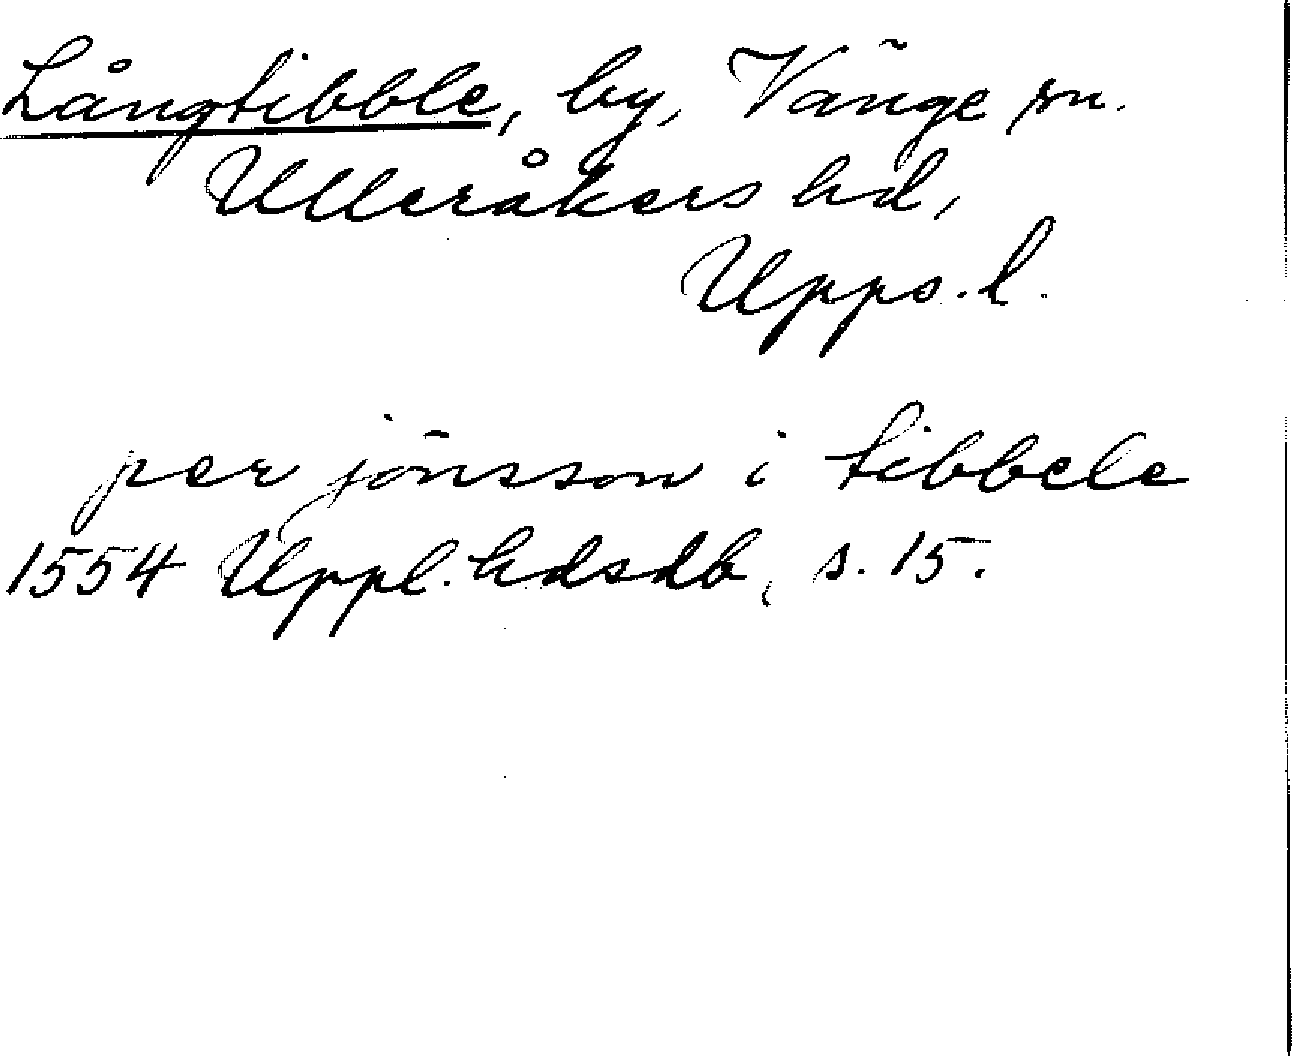 Långtibble, by, Vänge sn.
Ulleråkers hd,
Upps. l.
per jönsson i tibbele
1554 Uppl. hdsdb, s. 15.